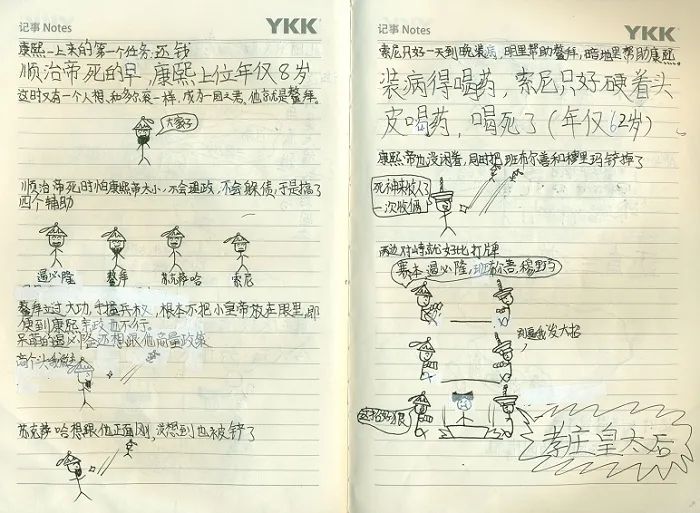 记事 Notes
YKK
康熙一上来的第一个任务:还钱
顺治帝死的早,康熙上位年仅8岁
这时又有一个人想,和多尔衮一样,成为一国之君,他就是鳌拜。
大家好
顺治帝死时怕康熙帝太小,不会理政,不会躲债,于是搞了
四个辅助
遏必隆
鳌拜
苏克萨哈
索尼
鳌拜立过大功,手握兵权,根本不把小皇帝放在眼里,即
使到康熙亲政也不行。
呆萌的遏必隆还想跟他商量政策
苏克萨哈想跟他正面刚,没想到也被铲了
记事 Notes
YKK
索尼只好一天到晚装病,明里帮助鳌拜,暗地里帮助康熙。
装病得喝药,索尼只好硬着头
皮喝药,喝死了(年仅62岁)
康熙帝也没闲着,同时把班布尔善和穆里玛铲掉了
死神来收人了
一次收俩
两边对峙就好比打牌
赛本,遏必隆,班布尔善,穆里玛
别逼我发大招
这招好狠
孝庄皇太后